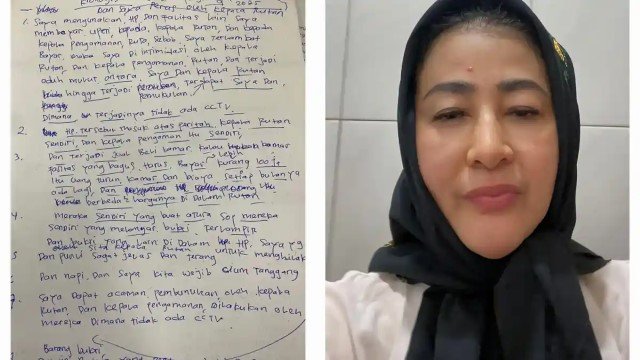 2025
Dan saya Peras oleh kepala Rutan
1. Saya menggunakan, HP Dan Falitas lain saya
membayar upeti, kepada, kepala Rutan, Dan kepada
kepala pengamanan, Rutan, sebab, Saya Terlambat
Bayar, maka Saya Di intimidasi oleh kepala
Rutan, Dan kepala pengamanan, Rutan, Dan Terjadi
aduh mulut antara, Saya Dan kepala Rutan
hingga Terjadi Terdapat Saya Dan
pemukulan
Dimana Terjadinya tidak ada CCTV.
2. HP. Tersebut masuk atas perintah, kepala Rutan
sendiri, Dan kepala pengaman itu sendiri,
3. Dan Terjadi Jual Beli kamar kalau kamar
falitas yang bagus, harus, Bayar kurang lebih
itu uang turun kamar Dan biaya setiap bulan ya
ada lagi, Dan HP itu
berbeda-2 harganya Di Dalam Rutan
4. Mereka sendiri yang buat atura SOP mereka
sendiri yang melangar, bukti Terlampir
Dan bukti yang lain Di Dalam HP, Saya yg
sita kepala Rutan
5 Dan punu Sagat jelas Dan terang untuk menghilak
Dan napi, Dan Saya kita wajib Tanggung
7. Saya Dapat acaman pembunuhan oleh, kepala
Rutan, Dan kepala pengamanan, Dilakukan oleh
mereka Dimana tidak ada CCTV.
Barang bukti